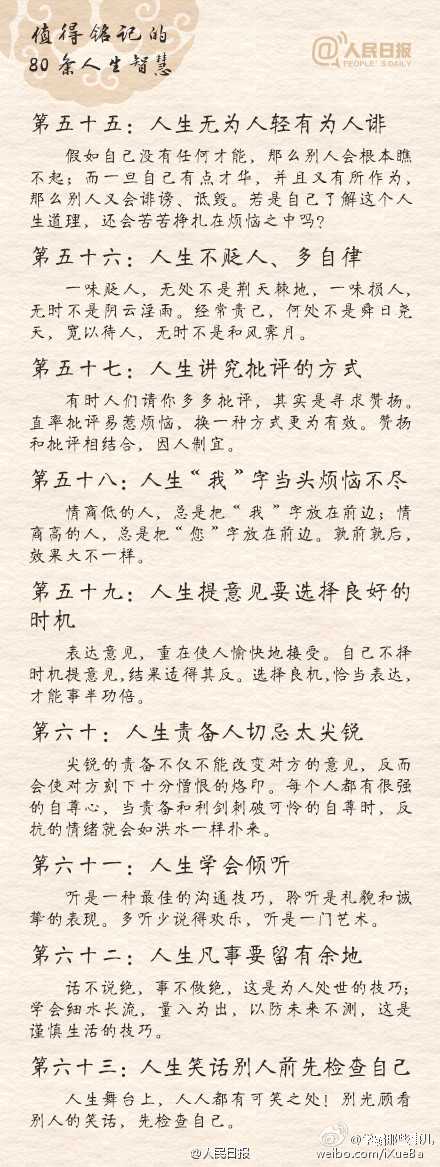 值得铭记的
80条人生智慧
@人民日报
PEOPLE'S DAILY
第五十五：人生无为人轻有为人诽
假如自己没有任何才能，那么别人会根本瞧
不起；而一旦自己有点才华，并且又有所作为，
那么别人又会诽谤、诋毁。若是自己了解这个人
生道理，还会苦苦挣扎在烦恼之中吗？
第五十六：人生不贬人、多自律
一味贬人，无处不是荆天棘地，一味损人，
无时不是阴云淫雨。经常责己，何处不是舜日尧
天，宽以待人，无时不是和风霁月。
第五十七：人生讲究批评的方式
有时人们请你多多批评，其实是寻求赞扬。
直率批评易惹烦恼，换一种方式更为有效。赞扬
和批评相结合，因人制宜。
第五十八：人生“我”字当头烦恼不尽
情商低的人，总是把“我”字放在前边；情
商高的人，总是把“您”字放在前边。孰前孰后，
效果大不一样。
第五十九：人生提意见要选择良好的
时机
表达意见，重在使人愉快地接受。自己不择
时机提意见，结果适得其反。选择良机，恰当表达，
才能事半功倍。
第六十：人生责备人切忌太尖锐
尖锐的责备不仅不能改变对方的意见，反而
会使对方刻下十分憎恨的烙印。每个人都有很强
的自尊心，当责备和利剑刺破可怜的自尊时，反
抗的情绪就会如洪水一样扑来。
第六十一：人生学会倾听
听是一种最佳的沟通技巧，聆听是礼貌和诚
挚的表现。多听少说得欢乐，听是一门艺术。
第六十二：人生凡事要留有余地
话不说绝，事不做绝，这是为人处世的技巧；
学会细水长流，量入为出，以防未来不测，这是
谨慎生活的技巧。
第六十三：人生笑话别人前先检查自己
人生舞台上，人人都有可笑之处！别光顾看
别人的笑话，先检查自己。
@人民日报
weibo.com/iXueBa